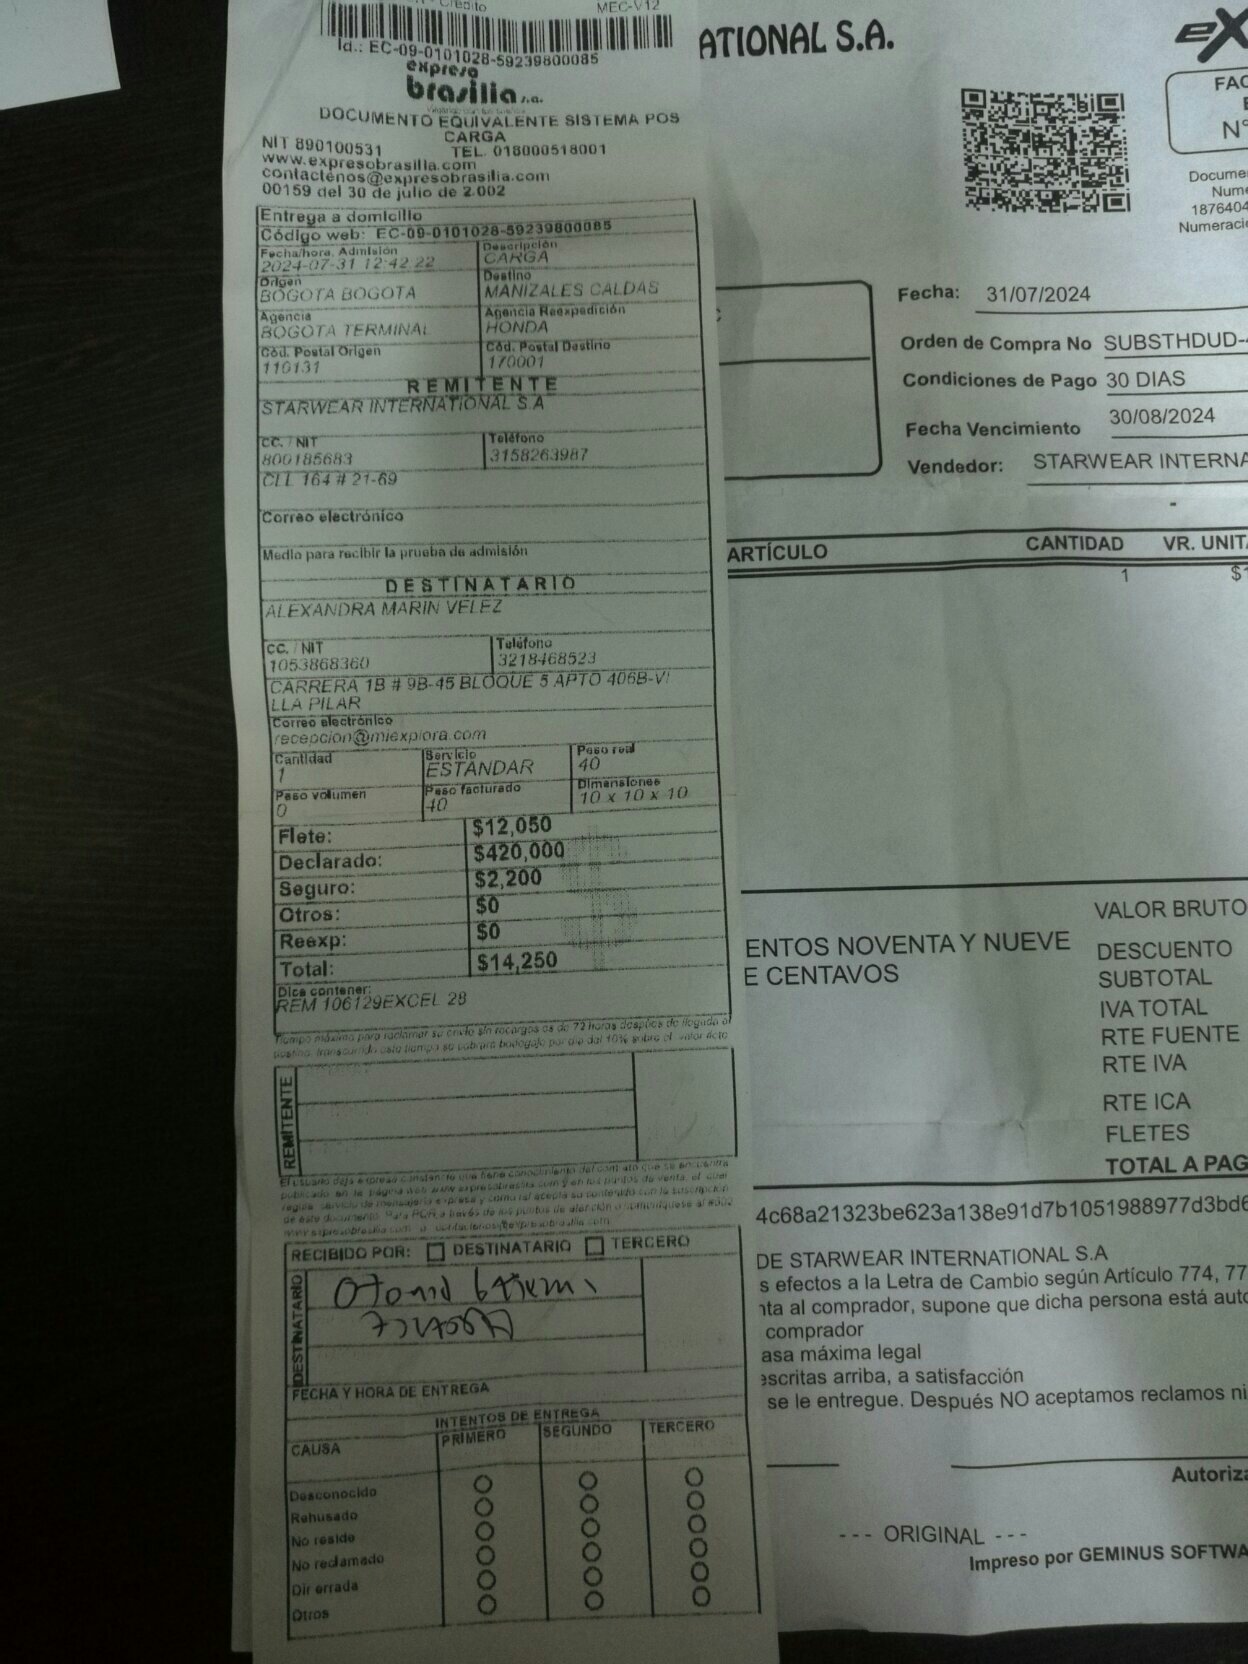 Crédito
MEC-V12
Id.: EC-09-0101028-59239800085
expreso
brasilia s.a.
DOCUMENTO EQUIVALENTE SISTEMA POS
CARGA
NIT 890100531 TEL. 018000518001
www.expresobrasilia.com
contactenos@expresobrasilia.com
00159 del 30 de julio de 2.002
Entrega a domicilio
Código web: EC-09-0101028-59239800085
Fecha/hora. Admisión Descripción
2024-07-31 12:42:22 CARGA
Origen Destino
BOGOTA BOGOTA MANIZALES CALDAS
Agencia Agencia Reexpedición
BOGOTA TERMINAL HONDA
Cód. Postal Origen Cód. Postal Destino
110131 170001
REMITENTE
STARWEAR INTERNATIONAL S.A
CC. / NIT Teléfono
800185683 3158263987
CLL 164 # 21-69
Correo electrónico
Medio para recibir la prueba de admisión
DESTINATARIO
ALEXANDRA MARIN VELEZ
CC. / NIT Teléfono
1053868360 3218468523
CARRERA 1B # 9B-45 BLOQUE 5 APTO 406B-VI
LLA PILAR
Correo electrónico
recepcion@miexplora.com
Cantidad Servicio Peso real
1 ESTANDAR 40
Peso volumen Peso facturado Dimensiones
0 40 10 x 10 x 10
Flete: $12,050
Declarado: $420,000
Seguro: $2,200
Otros: $0
Reexp: $0
Total: $14,250
Dice contener:
REM 106129EXCEL 28
Tiempo máximo para reclamar su envío sin recargos es de 72 horas después de llegada al
destino, transcurrido este tiempo se cobrará bodegaje por día del 10% sobre el valor flete
REMITENTE
El usuario deja expresa constancia que tiene conocimiento del contrato que se encuentra
publicado en la página web www.expresobrasilia.com y en los puntos de venta, el cual
regula servicio de mensajería expresa y como tal acepta su contenido con la suscripción
de este documento. Para PQR a través de los puntos de atención o comuníquese al #302
www.expresobrasilia.com o contactenos@expresobrasilia.com
RECIBIDO POR: DESTINATARIO TERCERO
DESTINATARIO
FECHA Y HORA DE ENTREGA
INTENTOS DE ENTREGA
CAUSA PRIMERO SEGUNDO TERCERO
Desconocido
Rehusado
No reside
No reclamado
Dir errada
Otros
ATIONAL S.A.
eX
FAC
E
N°
Docume
Nume
1876404
Numeració
Fecha: 31/07/2024
Orden de Compra No SUBSTHDUD-4
Condiciones de Pago 30 DIAS
Fecha Vencimiento 30/08/2024
Vendedor: STARWEAR INTERNA
-
ARTÍCULO CANTIDAD VR. UNITA
1 $1
VALOR BRUTO
ENTOS NOVENTA Y NUEVE
E CENTAVOS
DESCUENTO
SUBTOTAL
IVA TOTAL
RTE FUENTE
RTE IVA
RTE ICA
FLETES
TOTAL A PAG
4c68a21323be623a138e91d7b1051988977d3bd6
DE STARWEAR INTERNATIONAL S.A
s efectos a la Letra de Cambio según Artículo 774, 77
nta al comprador, supone que dicha persona está auto
comprador
asa máxima legal
escritas arriba, a satisfacción
se le entregue. Después NO aceptamos reclamos ni
Autoriza
--- ORIGINAL ---
Impreso por GEMINUS SOFTWA